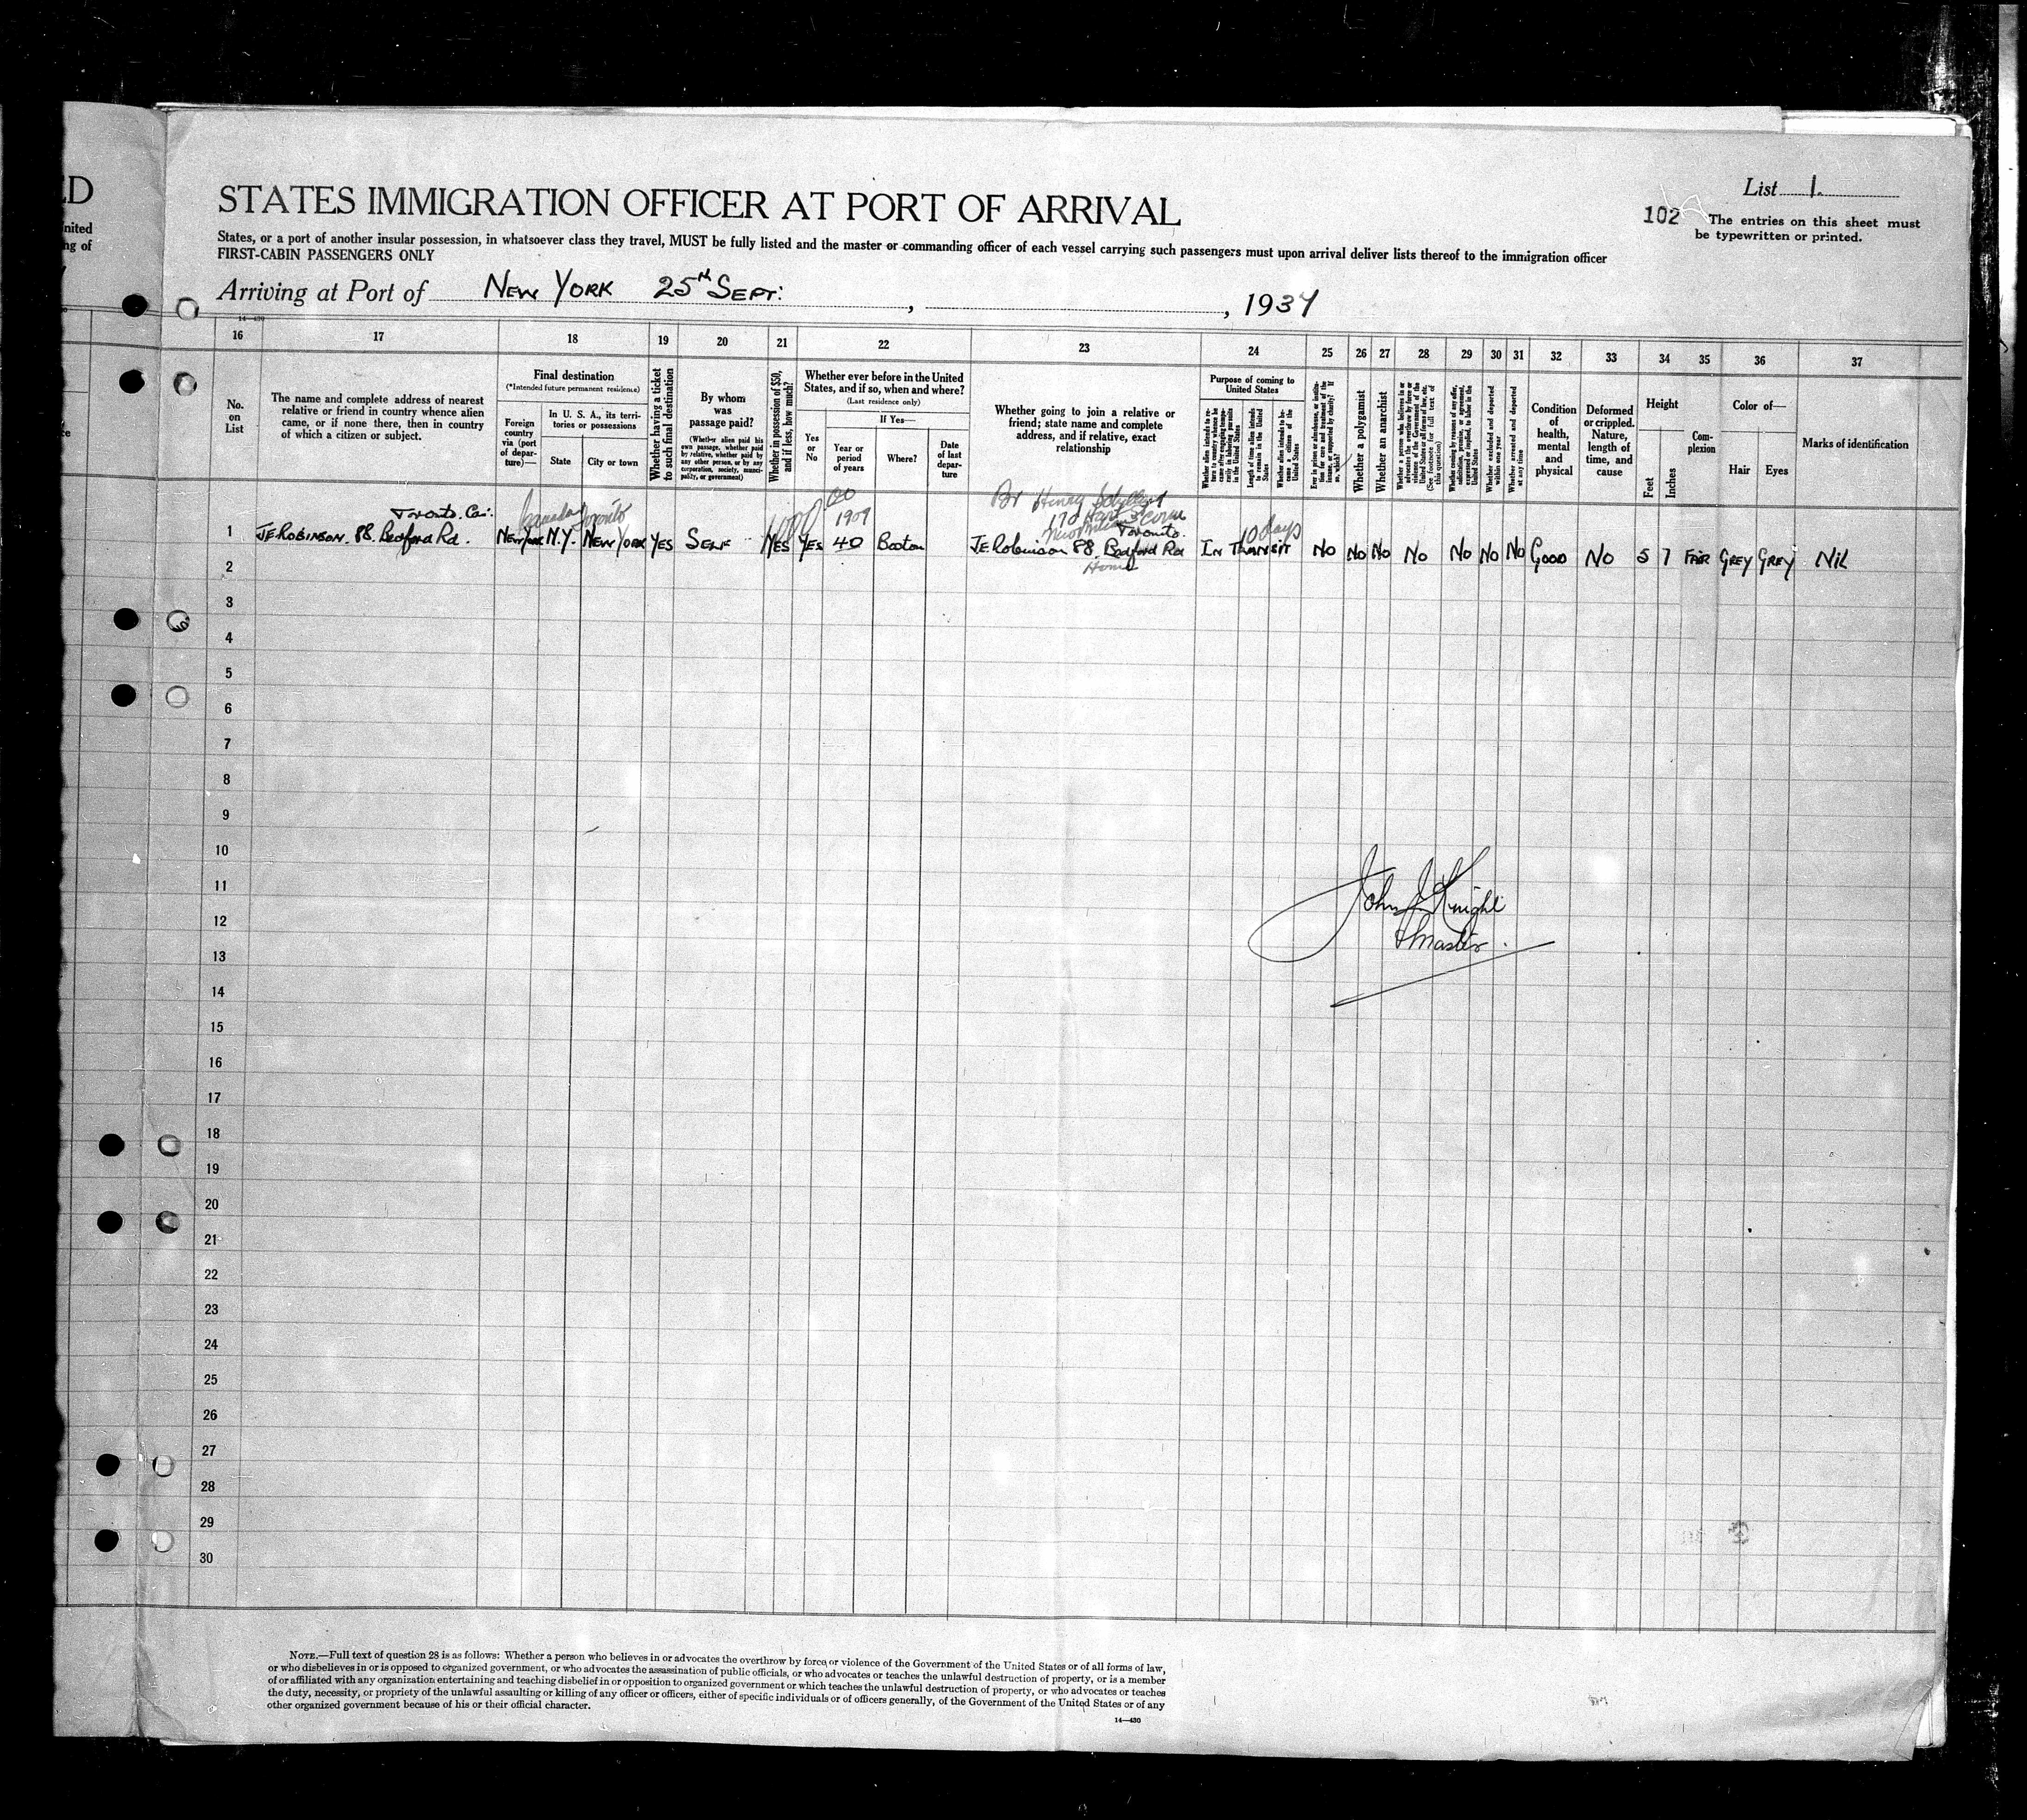 ED
List 1.
STATES IMMIGRATION OFFICER AT PORT OF ARRIVAL
102
nited
ng of
The entries on this sheet must
be typewritten or printed.
States, or a port of another insular possession, in whatsoever class they travel, MUST be fully listed and the master or commanding officer of each vessel carrying such passengers must upon arrival deliver lists thereof to the immigration officer
FIRST-CABIN PASSENGERS ONLY
Arriving at Port of NEW YORK 25th SEPT: , , 1937
14—430
16 17 18 19 20 21 22 23 24 25 26 27 28 29 30 31 32 33 34 35 36 37
No.
on
List
The name and complete address of nearest
relative or friend in country whence alien
came, or if none there, then in country
of which a citizen or subject.
Final destination
(*Intended future permanent residence)
Foreign
country
via (port
of depar-
ture)—
In U. S. A., its terri-
tories or possessions
State
City or town
Whether having a ticket
to such final destination
By whom
was
passage paid?
(Whether alien paid his
own passage, whether paid
by relative, whether paid by
any other person, or by any
corporation, society, munici-
pality, or government)
Whether in possession of $50,
and if less, how much?
Whether ever before in the United
States, and if so, when and where?
(Last residence only)
Yes
or
No
If Yes—
Year or
period
of years
Where?
Date
of last
depar-
ture
Whether going to join a relative or
friend; state name and complete
address, and if relative, exact
relationship
Purpose of coming to
United States
Whether alien intends to re-
turn to country whence he
came after engaging tempo-
rarily in laboring pursuits
in the United States
Length of time alien intends
to remain in the United
States
Whether alien intends to be-
come a citizen of the
United States
Ever in prison or almshouse, or institu-
tion for care and treatment of the
insane, or supported by charity? If
so, which?
Whether a polygamist
Whether an anarchist
Whether a person who believes in or
advocates the overthrow by force or
violence of the Government of the
United States or all forms of law, etc.
(See footnote for full text of
this question)
Whether coming by reasons of any offer,
solicitation, promise, or agreement,
expressed or implied, to labor in the
United States
Whether excluded and deported
within one year
Whether arrested and deported
at any time
Condition
of
health,
mental
and
physical
Deformed
or crippled.
Nature,
length of
time, and
cause
Height
Feet
Inches
Com-
plexion
Color of—
Hair
Eyes
Marks of identification
Toronto. Can.
Canada Toronto
00
1909
Br Henry
170
Toronto.
10 days
1 JE ROBINSON. 88. Bedford Rd. NEW YORK N.Y. NEW YORK YES SELF YES YES 40 Boston JE Robinson 88. Bedford Rd IN TRANSIT NO NO NO NO NO NO NO GOOD NO 5 7 FAIR GREY GREY NIL
Home
2
3
4
5
6
7
8
9
10
11
12
13
14
15
16
17
18
19
20
21
22
23
24
25
26
27
28
29
30
John J Knight
Master.
NOTE.—Full text of question 28 is as follows: Whether a person who believes in or advocates the overthrow by force or violence of the Government of the United States or of all forms of law,
or who disbelieves in or is opposed to organized government, or who advocates the assassination of public officials, or who advocates or teaches the unlawful destruction of property, or is a member
of or affiliated with any organization entertaining and teaching disbelief in or opposition to organized government or which teaches the unlawful destruction of property, or who advocates or teaches
the duty, necessity, or propriety of the unlawful assaulting or killing of any officer or officers, either of specific individuals or of officers generally, of the Government of the United States or of any
other organized government because of his or their official character.
14—430